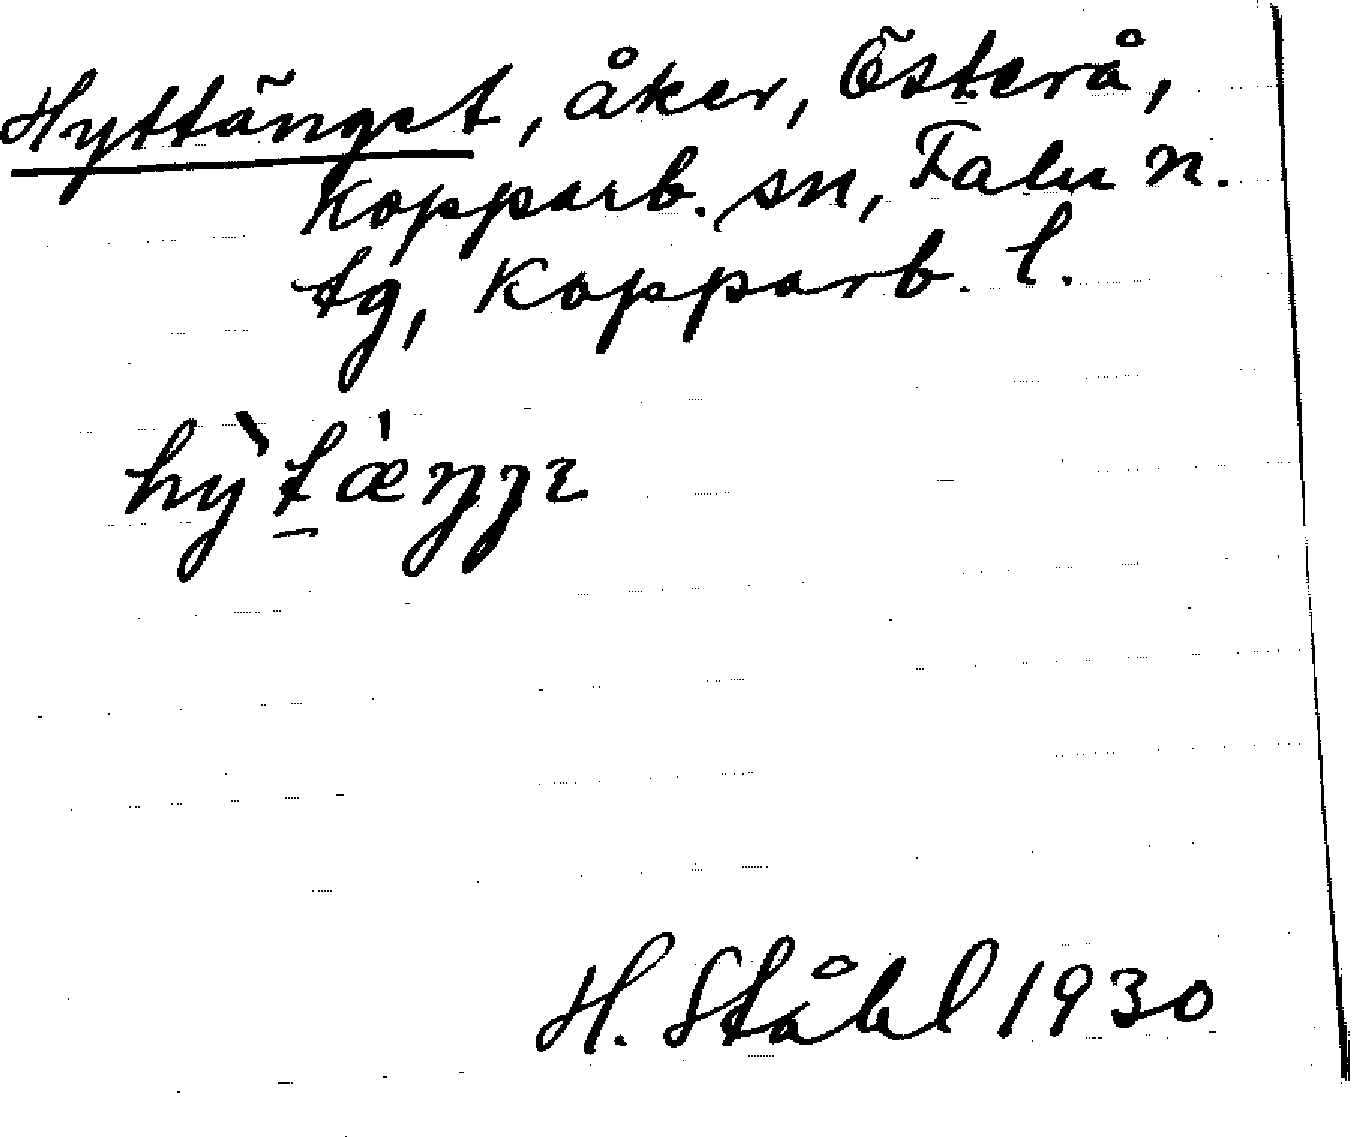 Hyttänget, åker, Österå,
Kopparb. sn, Falu n.
tg, Kopparb. l.
hỳt̠æ̀ŋŋɪ
H. Ståhl 1930